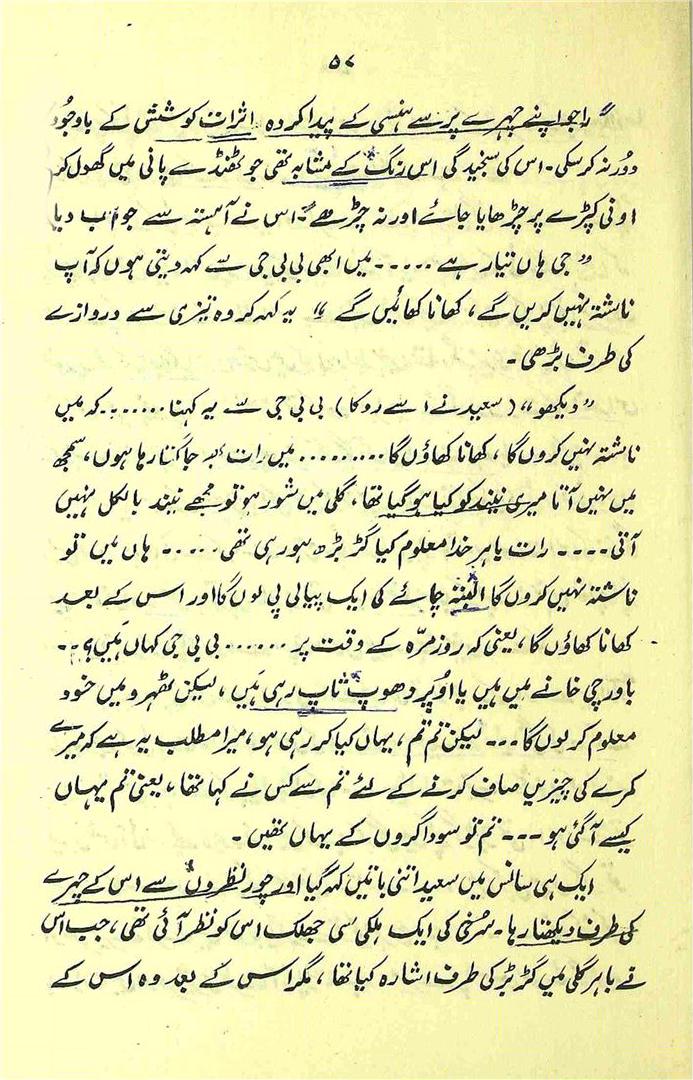 ۵۷
"راجو اپنے چہرے پر سے ہنسی کے پیدا کردہ اثرات کوشش کے باوجود
دُور نہ کر سکی۔ اس کی سنجیدگی اس رنگ کے مشابہ تھی جو ٹھنڈے پانی میں گھول کر
اونی کپڑے پر چڑھایا جائے اور نہ چڑھے۔ اس نے آہستہ سے جواب دیا
"جی ہاں تیار ہے ..... میں ابھی بی بی جی سے کہہ دیتی ہوں کہ آپ
ناشتہ نہیں کریں گے، کھانا کھائیں گے" یہ کہہ کر وہ تیزی سے دروازے
کی طرف بڑھی۔
"دیکھو" (سعید نے اسے روکا) بی بی جی سے یہ کہنا ...... کہ میں
ناشتہ نہیں کروں گا، کھانا کھاؤں گا ......... میں رات بھر جاگتا رہا ہوں، سمجھ
میں نہیں آتا میری نیند کو کیا ہو گیا تھا، گلی میں شور ہو تو مجھے نیند بالکل نہیں
آتی .... رات باہر خدا معلوم کیا گڑ بڑھ ہو رہی تھی ..... ہاں میں تو
ناشتہ نہیں کروں گا البتہ چائے کی ایک پیالی پی لوں گا اور اس کے بعد
کھانا کھاؤں گا، یعنی کہ روزمرّہ کے وقت پر ...... بی بی جی کہاں ہَیں؟ ..
باورچی خانے میں ہیں یا اُوپر دھوپ تاپ رہی ہَیں، لیکن ٹھہرو میں خود
معلوم کر لوں گا ... لیکن تم تم، یہاں کیا کر رہی ہو، میرا مطلب یہ ہے کہ میرے
کمرے کی چیزیں صاف کرنے کے لئے تم سے کس نے کہا تھا، یعنی تم یہاں
کیسے آ گئی ہو ... تم تو سوداگروں کے یہاں تھیں۔
ایک ہی سانس میں سعید اتنی باتیں کہہ گیا اور چور نظروں سے اس کے چہرے
کی طرف دیکھتا رہا۔ سُرخی کی ایک ہلکی سی جھلک اس کو نظر آئی تھی، جب اس
نے باہر گلی میں گڑبڑ کی طرف اشارہ کیا تھا، مگر اس کے بعد وہ اس کے